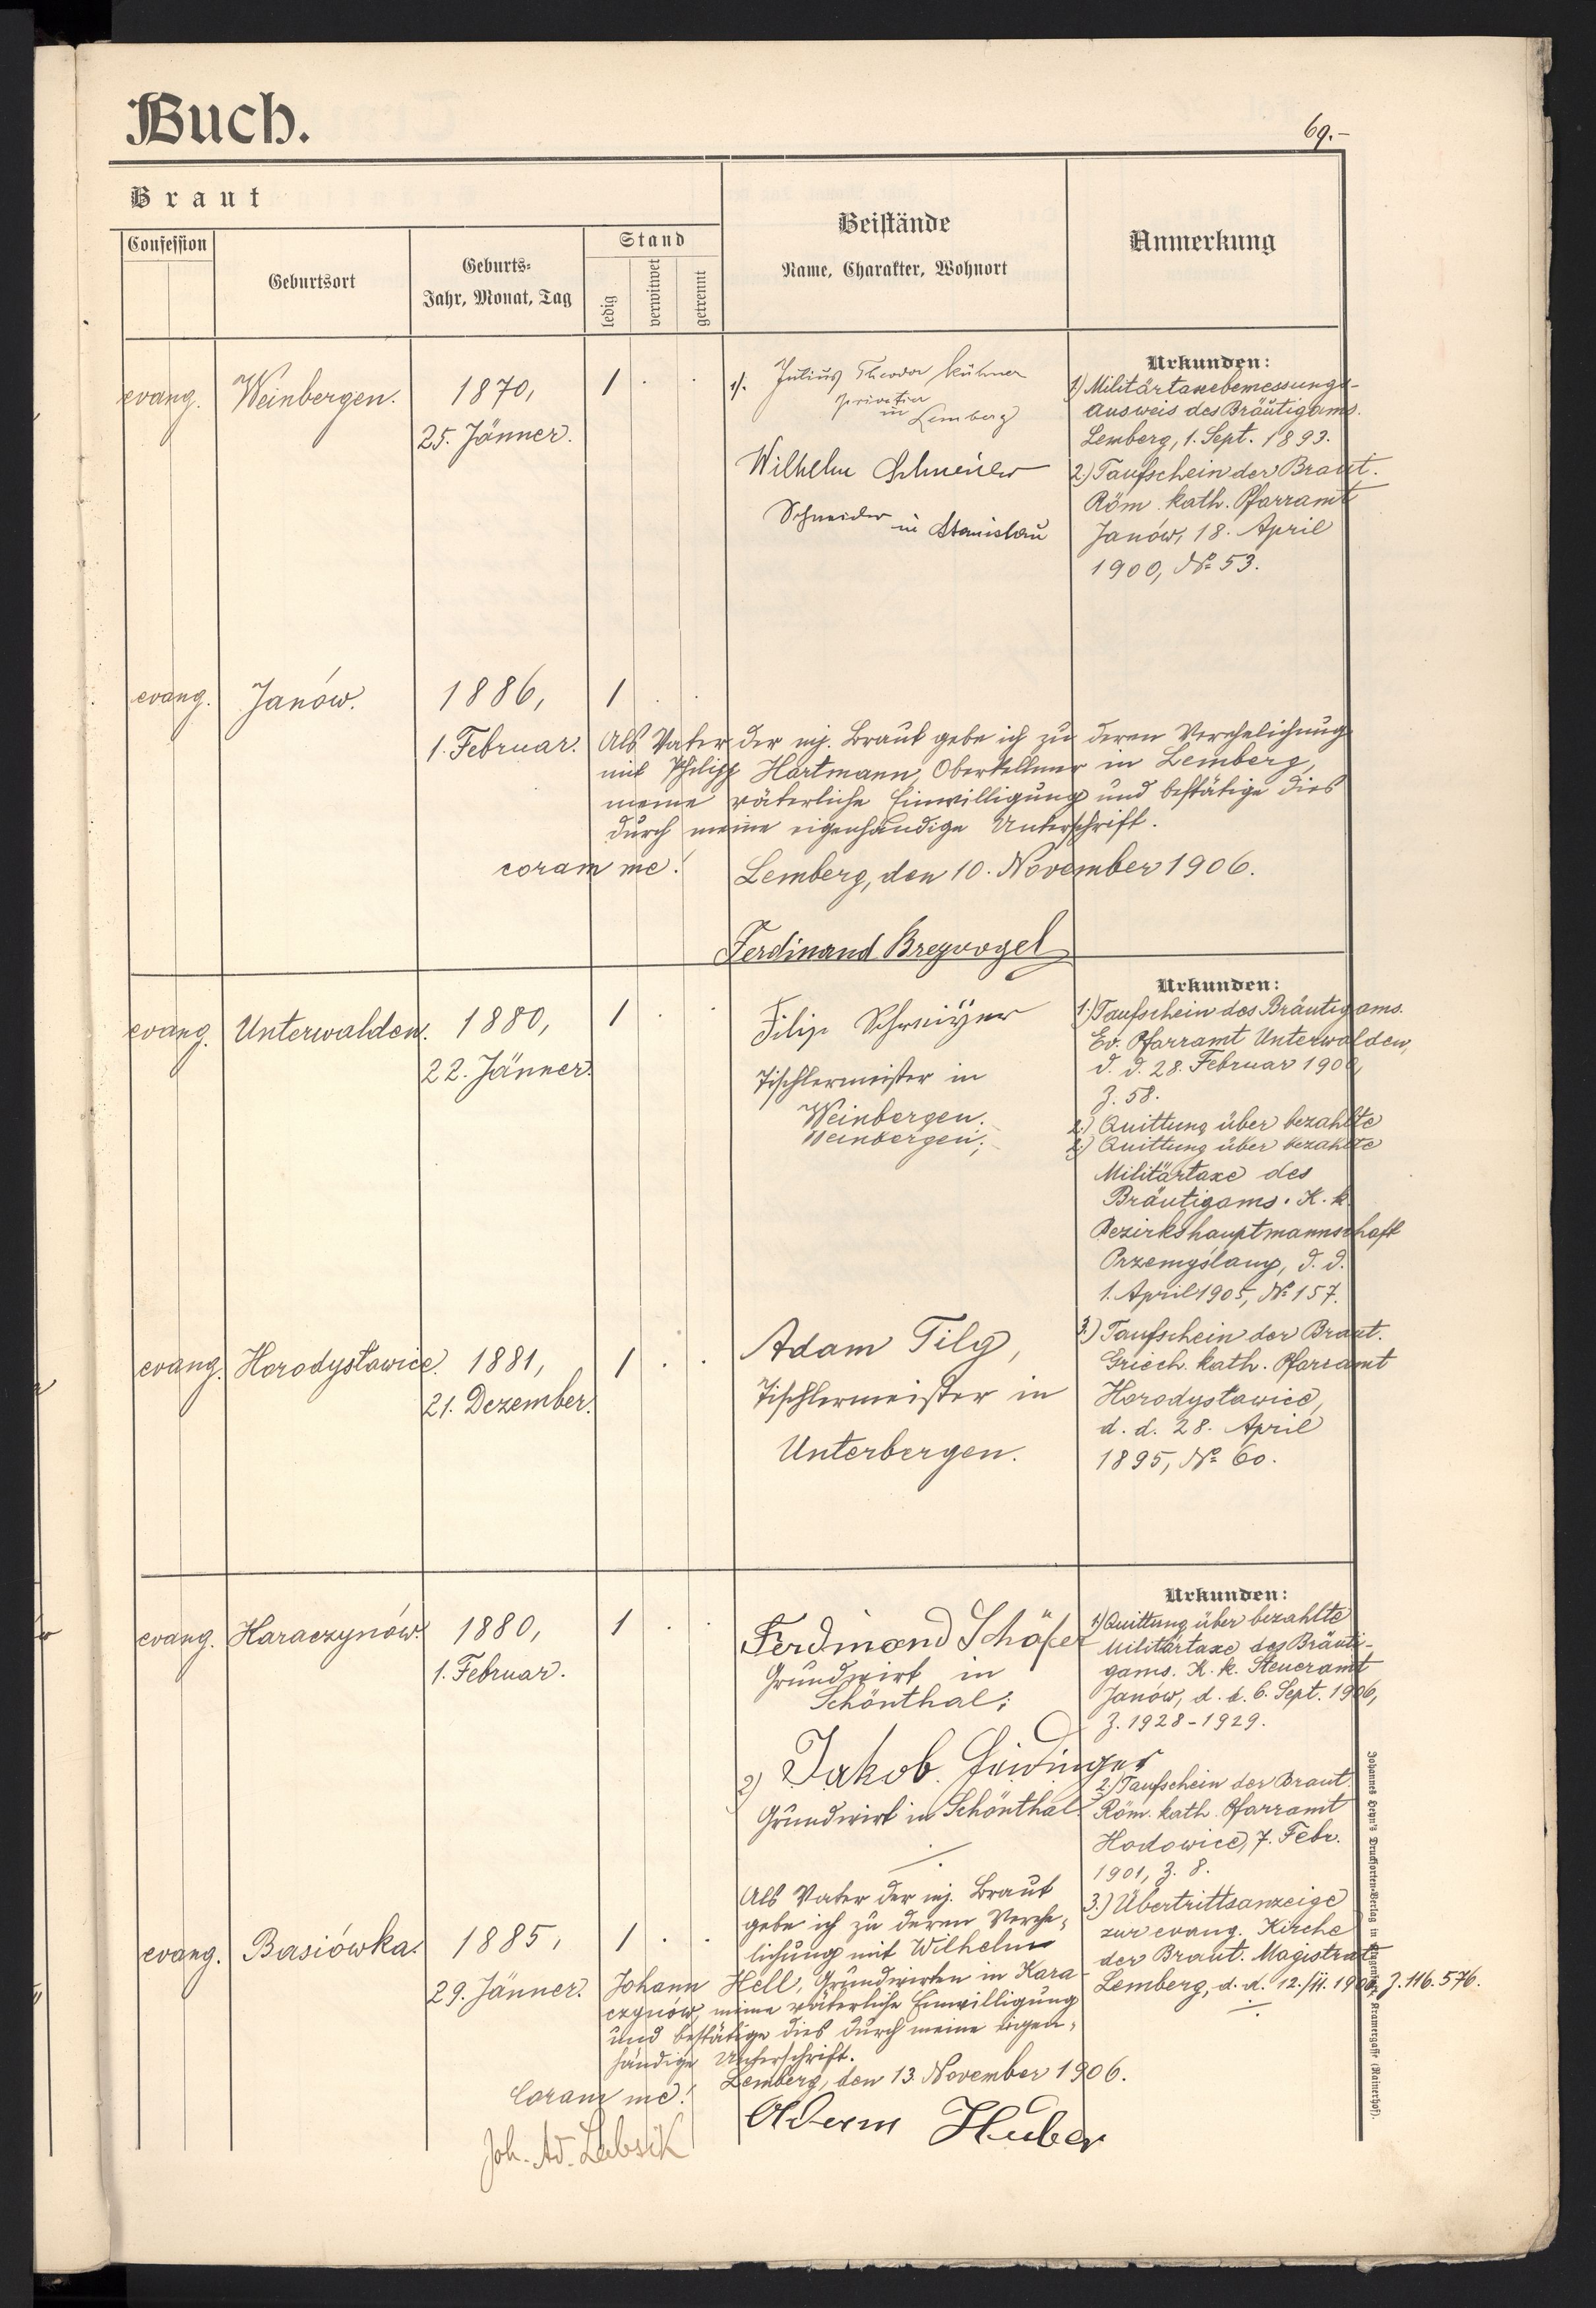 Buch.
69.-
Braut
Confession
Geburtsort
Geburts-
Jahr, Monat, Tag
Stand
ledig
verwitwet
getrennt
Beistände
Name, Charakter, Wohnort
Anmerkung
evang.
Weinbergen.
1870,
25. Jänner.
1 . .
1/. Julius Theodor Kühner
privatier
in Lemberg
Wilhelm
Schneider in Stanislau
Urkunden:
1) Militärtaxebemessungs-
Ausweis des Bräutigams.
Lemberg, 1. Sept. 1893.
2.) Taufschein der Braut.
Röm. kath. Pfarramt
Janów, 18. April
1900, № 53.
evang.
Janów.
1886,
1. Februar.
1 . .
Als Vater der mj. Braut gebe ich zu deren Verehelichung
mit Philipp Hartmann, Oberkellner in Lemberg,
meine väterliche Einwilligung und bestätige dies
durch meine eigenhändige Unterschrift.
coram me! Lemberg, den 10. November 1906.
Ferdinand Breyvogel
evang.
Unterwalden.
1880,
22. Jänner.
1 . .
Filip Schweiyer
Tischlermeister in
Weinbergen.
Weinbergen;
Urkunden:
1.) Taufschein des Bräutigams.
Ev. Pfarramt Unterwalden,
d. d. 28. Februar 1900,
Z. 58.
2.) Quittung über bezahlte
2.) Quittung über bezahlte
Militärtaxe des
Bräutigams. K. k.
Bezirkshauptmannschaft
Przemyślany, d. d.
1. April 1905, № 157.
3.) Taufschein der Braut.
Griech. kath. Pfarramt
Horodysławice,
d. d. 28. April
1895, № 60.
evang.
Horodysławice.
1881,
21. Dezember.
1 . .
Adam Tilg,
Tischlermeister in
Unterbergen.
evang.
Karaczynów.
1880,
1. Februar.
1 . .
Ferdinand Schäfer
Grundwirt in
Schönthal;
2) Jakob
Grundwirt in Schönthal.
Urkunden:
1) Quittung über bezahlte
Militärtaxe des Bräuti-
gams. K. k. Steueramt
Janów, d. d. 6. Sept. 1906,
Z. 1928-1929.
2.) Taufschein der Braut.
Röm. kath. Pfarramt
Hodowice, 7. Febr.
1901, Z. 8.
3.) Übertrittsanzeige
zur evang. Kirche
der Braut. Magistrat
Lemberg, d. d. 12./11. 1906, Z. 116.576.
evang.
Basiówka.
1885,
29. Jänner.
1 . .
Als Vater der mj. Braut
gebe ich zu deren Verehe-
lichung mit Wilhelm
Johann Hell, Grundwirten in Kara-
czynów, meine väterliche Einwilligung
und bestätige dies durch meine eigen-
händige Unterschrift.
Lemberg, den 13. November 1906.
Coram me!
Joh. Ad. Labsik
Adam Huber
Johannes Heyn's Drucksorten-Verlag in Klagenfurt, Kramergasse (Rainerhof).